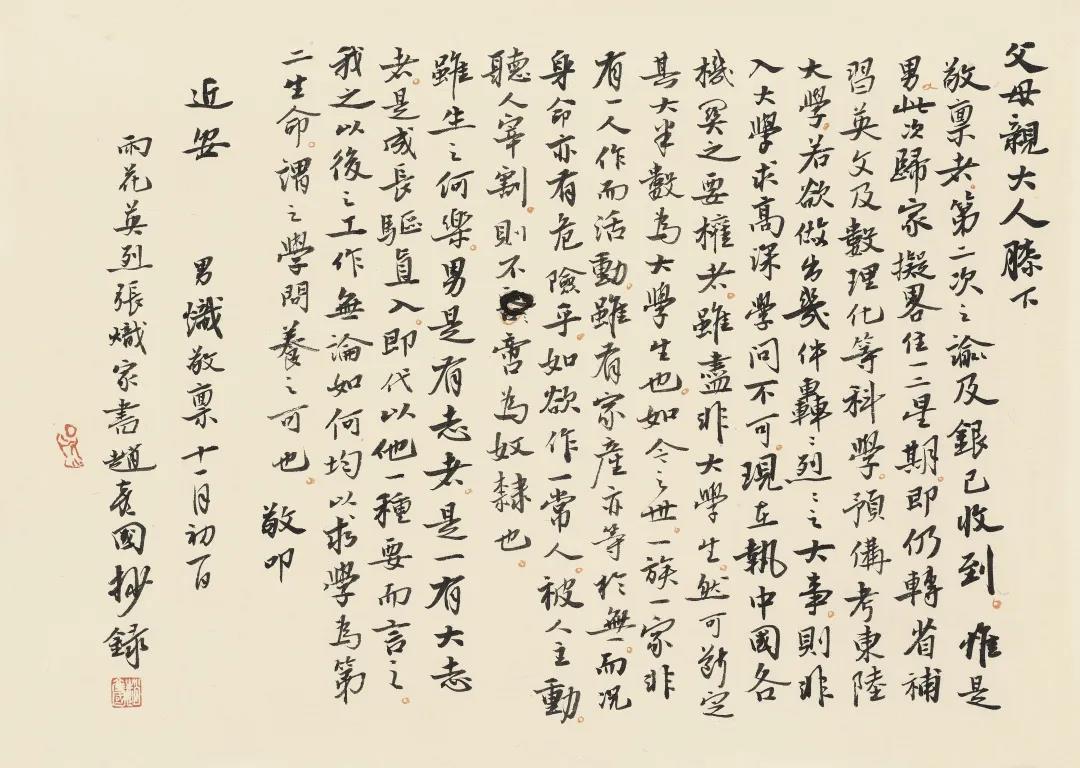 父母親大人膝下
敬稟者第二次之諭及銀已收到惟是
男此次歸家擬畧住一二星期即仍轉省補
習英文及數理化等科學預備考東陸
大學若欲做出幾件轟〻烈〻之大事則非
入大學求高深學问不可現在執中國各
機関之要權者雖盡非大學生然可斷定
其大半數為大學生也如今之世一族一家非
有一人作而活動雖有家產亦等於無而況
身命亦有危險乎如欲作一常人被人主動
聽人宰割則不啻為奴隸也
雖生之何樂男是有志者是一有大志
者是成長驅直入即代以他一種要而言之
我之以後之工作無論如何均以求學為第
二生命謂之學問養之可也 敬叩
近安 男熾敬稟十一月初一日
雨花英烈張熾家書趙亮國抄録